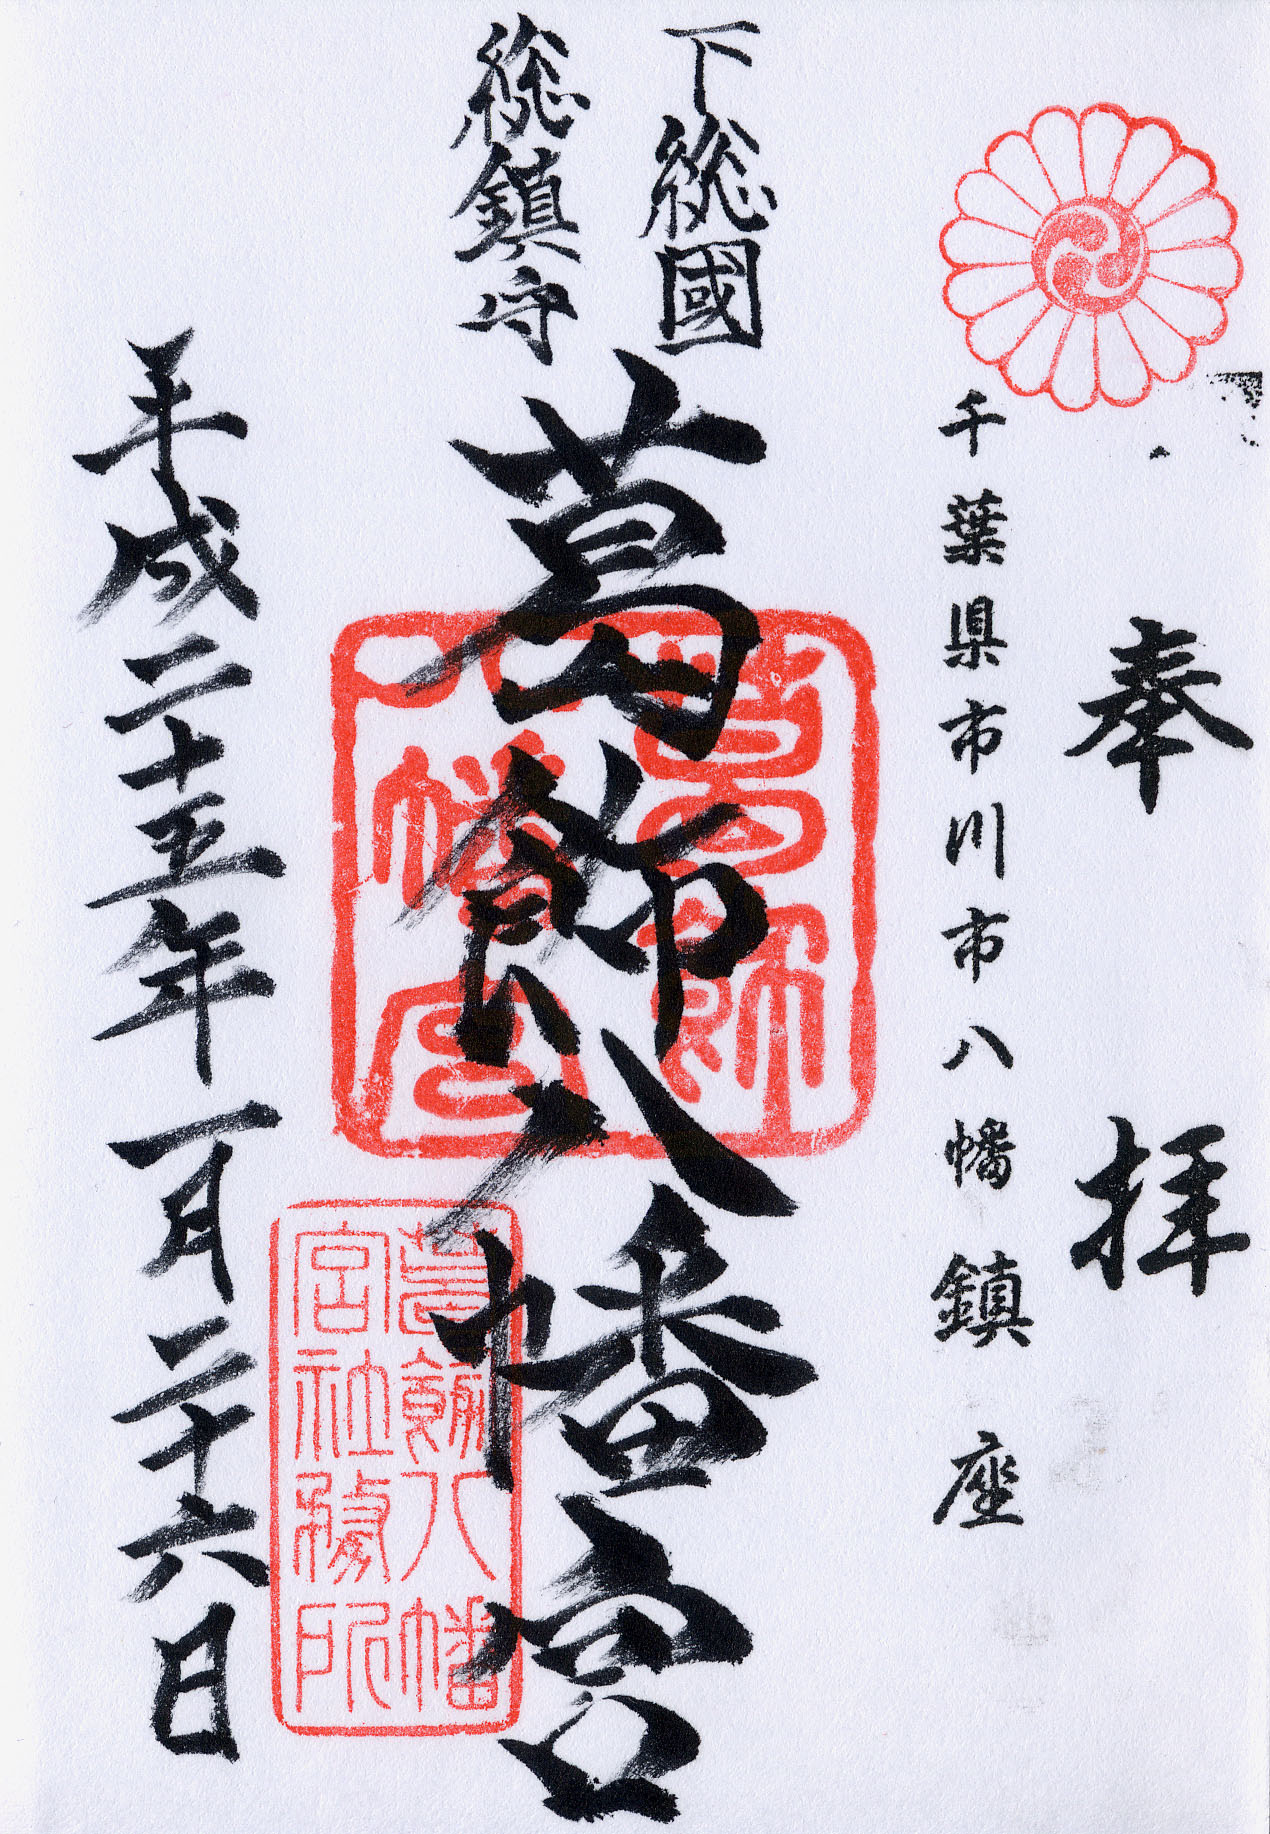 奉拝
千葉県市川市八幡鎮座
下総國
総鎮守
葛飾八幡宮
葛飾
八幡宮
葛飾八幡
宮社務所
平成二十五年一月二十六日